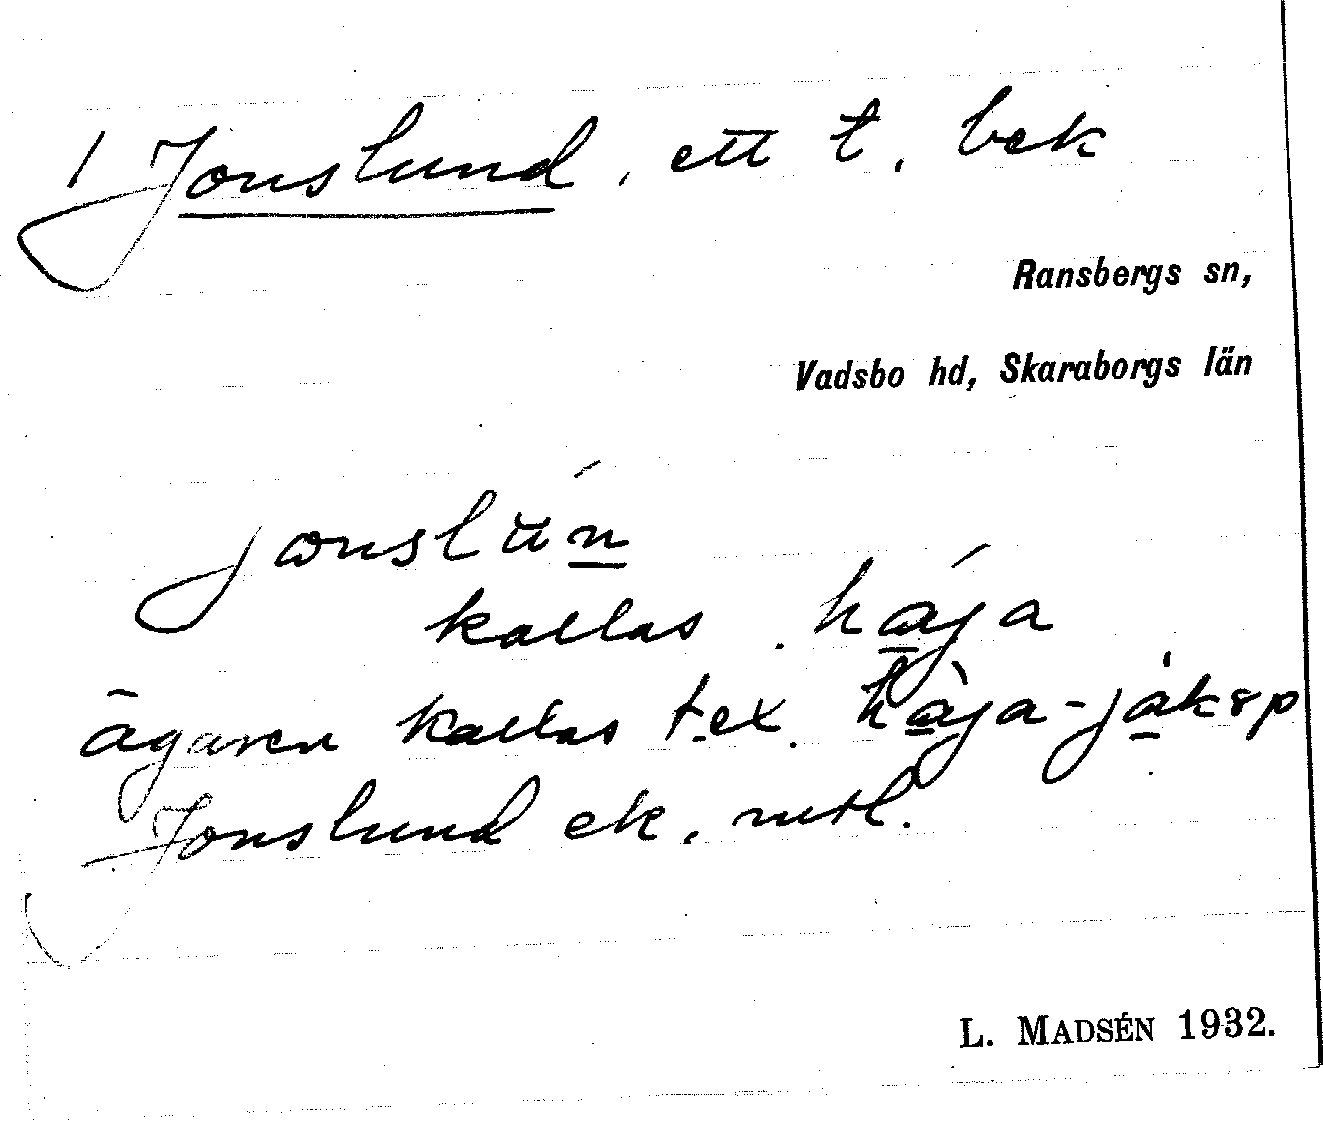 / Jonslund, ett t, bek
Ransbergs sn,
Vadsbo hd, Skaraborgs län
jonslún
kallas hája
ägaren kallas t.ex. hàja-jákəp
Jonslund ek. mtl.
L. MADSÉN 1932.